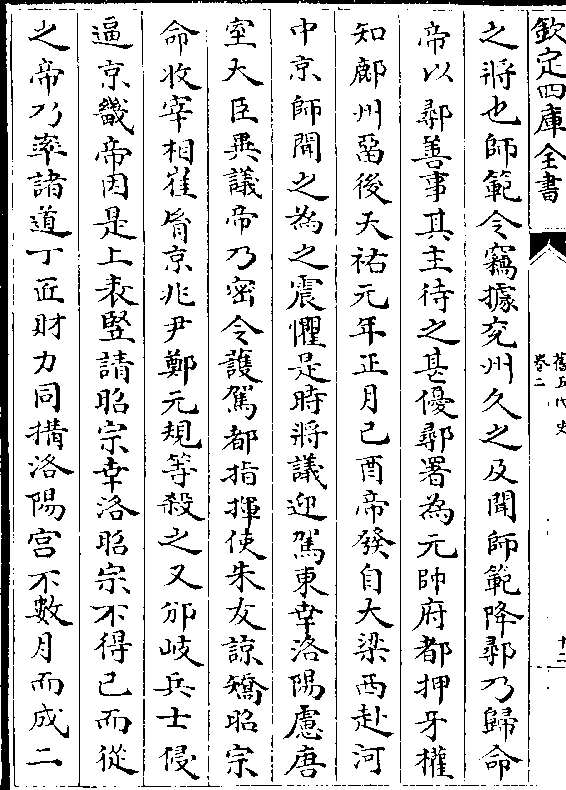 欽定四庫全書
舊五代史
卷二
十二
之將也師範令竊據兖州久之及聞師範降鄩乃歸命
帝以鄩善事其主待之甚優鄩署為元帥府都押牙權
知鄜州畱後天祐元年正月己酉帝發自大梁西赴河
中京師聞之為之震懼是時將議迎駕東幸洛陽慮唐
室大臣異議帝乃密令護駕都指揮使朱友諒矯昭宗
命收宰相崔胥京兆尹鄭元規等殺之又邠岐兵士侵
逼京畿帝因是上表堅請昭宗幸洛昭宗不得已而從
之帝乃率諸道丁匠財力同搆洛陽宫不數月而成二